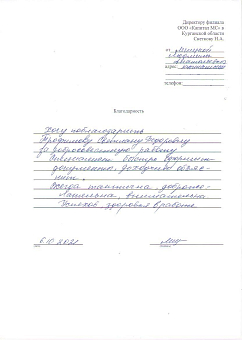 Директору филиала
ООО «Капитал МС» в
Курганской области
Светкову Н.А.
от
адрес
телефон:
Благодарность
Хочу поблагодарить
Трофимову Светлану Федоровну
за добросовестную работу
Специалист быстро оформил
документы, доходчиво объяс-
нил.
Всегда тактична, доброже-
лательна, внимательна
Успехов, здоровья в работе.
6.10.2021